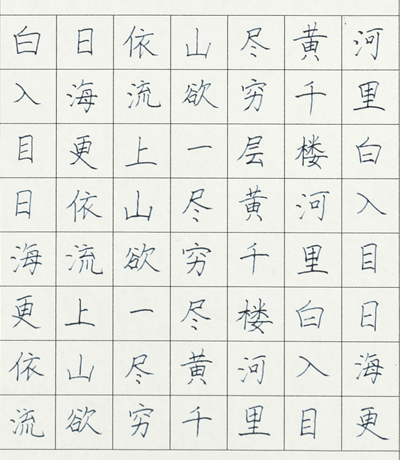 白日依山尽黄河
入海流欲穷千里
目更上一层楼白
日依山尽黄河入
海流欲穷千里目
更上一尽楼白日
依山尽黄河入海
流欲穷千里目更